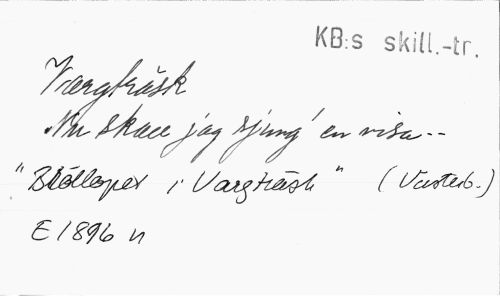 KB:s skill.-tr.
Vargträsk
Nu skall jag sjung' en visa--
"Bröllopet i Vargträsk" (Västerb.)
E 1896 n